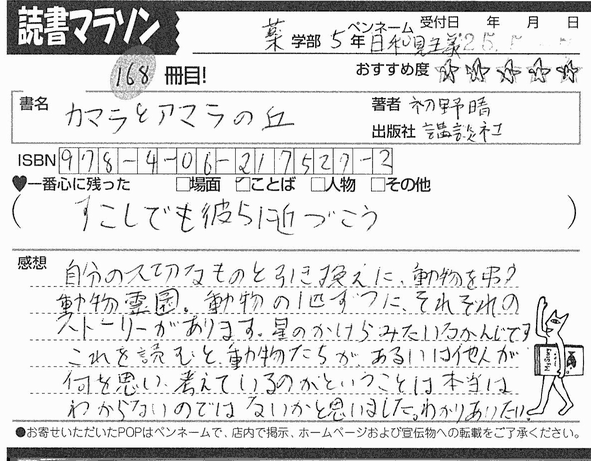 読書マラソン
薬 学部 5 年 ペンネーム 日和見主義 受付日 年 月 日
168 冊目!
おすすめ度 ☆☆☆☆☆
書名 カマラとアマラの丘
著者 初野晴
出版社 講談社
ISBN 978-4-06-217527-2
♥一番心に残った □場面 ☑ことば □人物 □その他
( すこしでも彼らに近づこう )
感想
自分の大切なものと引き換えに、動物を弔う
動物霊園。動物の1匹ずつに、それぞれの
ストーリーがあります。星のかけらみたいなかんじです
これを読むと、動物たちが、あるいは他人が
何を思い、考えているのかということは本当は
わからないのではないかと思いました。わかりあいたい。
●お寄せいただいたPOPはペンネームで、店内で掲示、ホームページおよび宣伝物への転載をご了承ください。